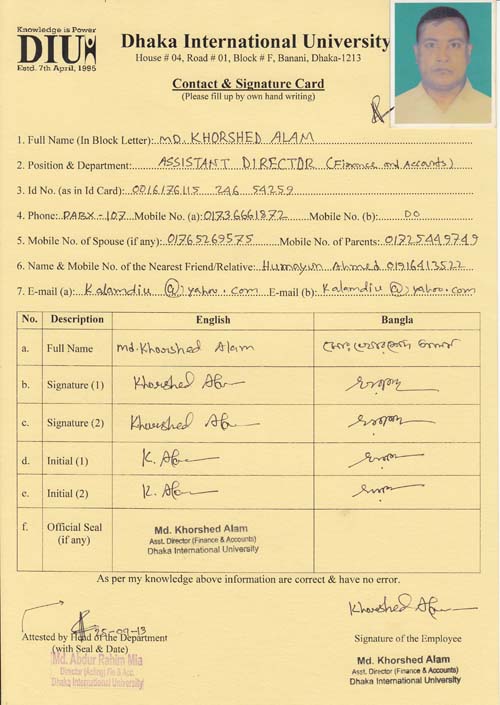 Knowledge is Power
DIU
Estd. 7th April, 1995
Dhaka International University
House # 04, Road # 01, Block # F, Banani, Dhaka-1213
Contact & Signature Card
(Please fill up by own hand writing)
1. Full Name (In Block Letter): MD. KHORSHED ALAM
2. Position & Department: ASSISTANT DIRECTOR (Finance and Accounts)
3. Id No. (as in Id Card): 0016176115 246 54259
4. Phone: PABX-107 Mobile No. (a): 01736661872 Mobile No. (b): DO
5. Mobile No. of Spouse (if any): 01765269575 Mobile No. of Parents: 01725449749
6. Name & Mobile No. of the Nearest Friend/Relative: Humayun Ahmed 01916413522
7. E-mail (a): Kalamdiu@yahoo.com E-mail (b): Kalamdiu@yahoo.com
No. Description English Bangla
a. Full Name Md. Khorshed Alam মোঃ খোরশেদ আলম
b. Signature (1) Khorshed Alam
c. Signature (2) Khorshed Alam
d. Initial (1) K. Alam
e. Initial (2) K. Alam
f. Official Seal (if any) Md. Khorshed Alam
Asst. Director (Finance & Accounts)
Dhaka International University
As per my knowledge above information are correct & have no error.
Khorshed Alam
25-09-13
Attested by Head of the Department Signature of the Employee
(with Seal & Date)
Md. Abdur Rahim Mia Md. Khorshed Alam
Director (Acting) Fin & Acc. Asst. Director (Finance & Accounts)
Dhaka International University Dhaka International University